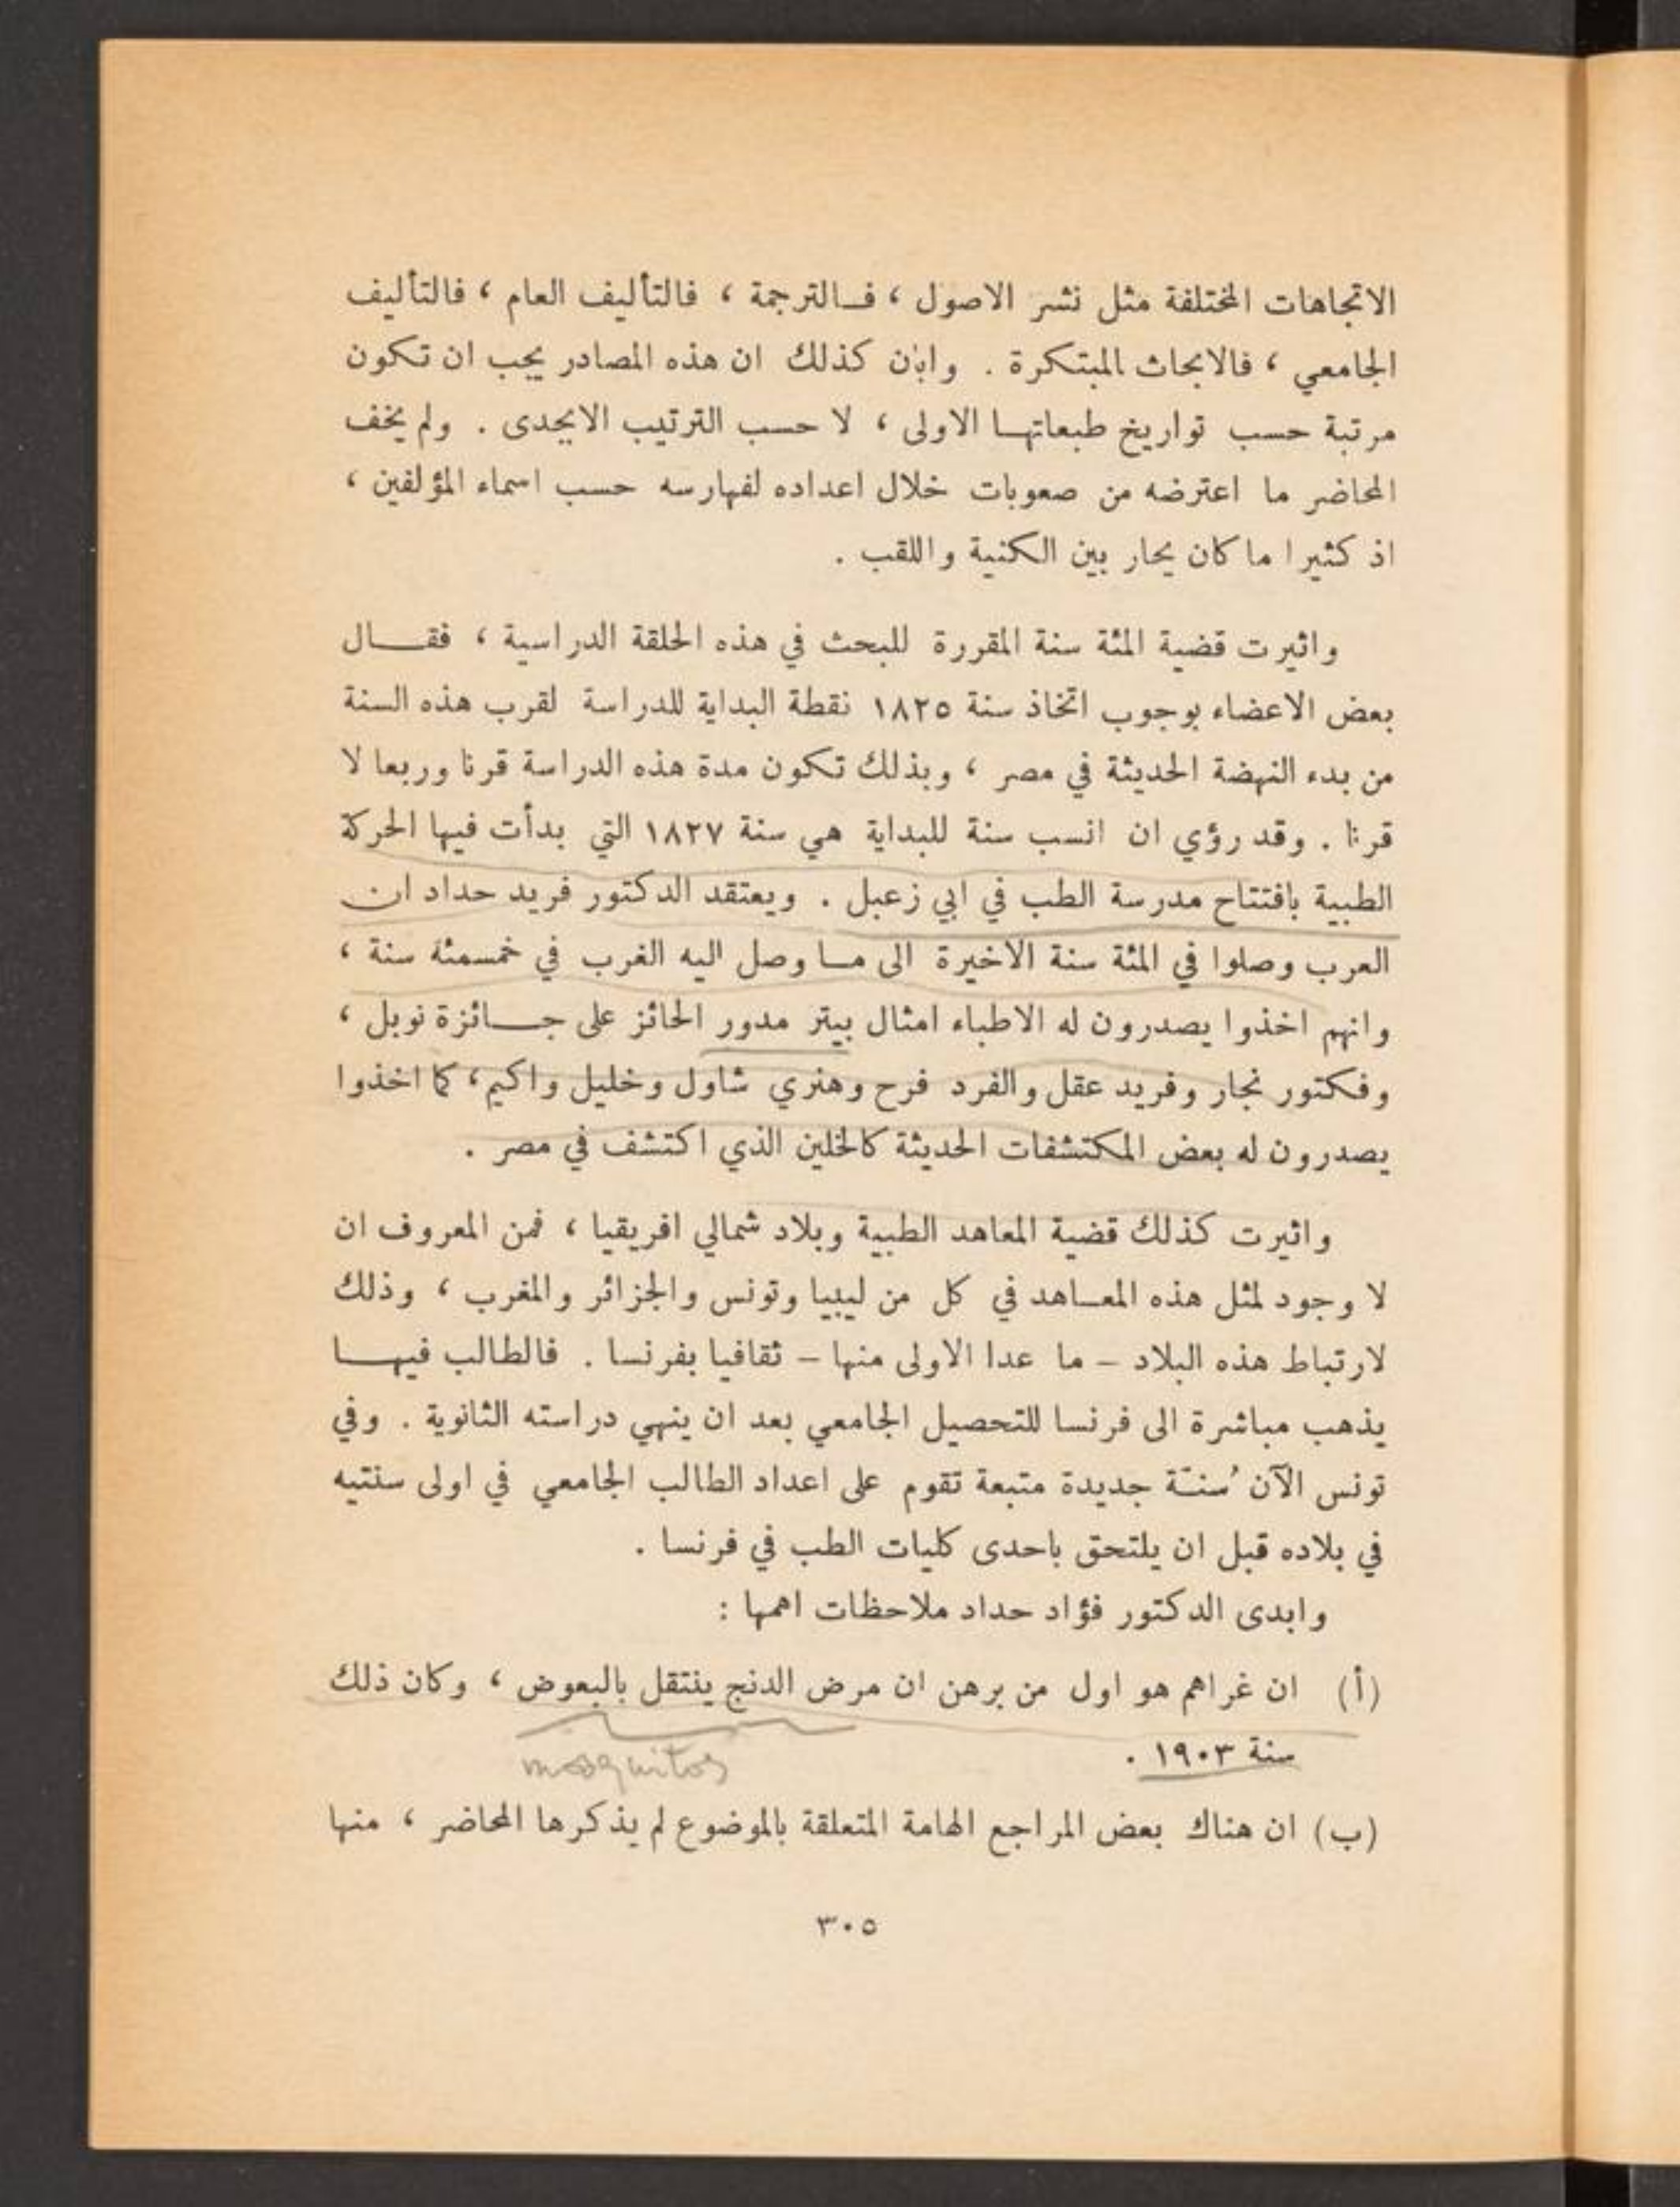 الاتجاهات المختلفة مثل نشر الاصول ، فـالترجمة ، فالتأليف العام ، فالتأليف
الجامعي ، فالابحاث المبتكرة . وابان كذلك ان هذه المصادر يجب ان تكون
مرتبة حسب تواريخ طبعاتهـا الاولى ، لا حسب الترتيب الابجدى . ولم يخف
المحاضر ما اعترضه من صعوبات خلال اعداده لفهارسه حسب اسماء المؤلفين ،
اذ كثيرا ما كان يحار بين الكنية واللقب .
واثيرت قضية المئة سنة المقررة للبحث في هذه الحلقة الدراسية ، فقـــال
بعض الاعضاء بوجوب اتخاذ سنة ١٨٢٥ نقطة البداية للدراسة لقرب هذه السنة
من بدء النهضة الحديثة في مصر ، وبذلك تكون مدة هذه الدراسة قرنا وربعا لا
قرنا . وقد رؤي ان انسب سنة للبداية هي سنة ١٨٢٧ التي بدأت فيها الحركة
الطبية بافتتاح مدرسة الطب في ابي زعبل . ويعتقد الدكتور فريد حداد ان
العرب وصلوا في المئة سنة الاخيرة الى مـا وصل اليه الغرب في خمسمئة سنة ،
وانهم اخذوا يصدرون له الاطباء امثال بيتر مدور الحائز على جـــائزة نوبل ،
وفكتور نجار وفريد عقل والفرد فرح وهنري شاول وخليل واكيم ، كما اخذوا
يصدرون له بعض المكتشفات الحديثة كالخلين الذي اكتشف في مصر .
واثيرت كذلك قضية المعاهد الطبية وبلاد شمالي افريقيا ، فمن المعروف ان
لا وجود لمثل هذه المعـاهد في كل من ليبيا وتونس والجزائر والمغرب ، وذلك
لارتباط هذه البلاد – ما عدا الاولى منها – ثقافيا بفرنسا . فالطالب فيهـــا
يذهب مباشرة الى فرنسا للتحصيل الجامعي بعد ان ينهي دراسته الثانوية . وفي
تونس الآن سُنّة جديدة متبعة تقوم على اعداد الطالب الجامعي في اولى سنتيه
في بلاده قبل ان يلتحق باحدى كليات الطب في فرنسا .
وابدى الدكتور فؤاد حداد ملاحظات اهمها :
(أ) ان غراهم هو اول من برهن ان مرض الدنج ينتقل بالبعوض ، وكان ذلك
سنة ١٩٠٣ .
mosquitos
(ب) ان هناك بعض المراجع الهامة المتعلقة بالموضوع لم يذكرها المحاضر ، منها
٣٠٥